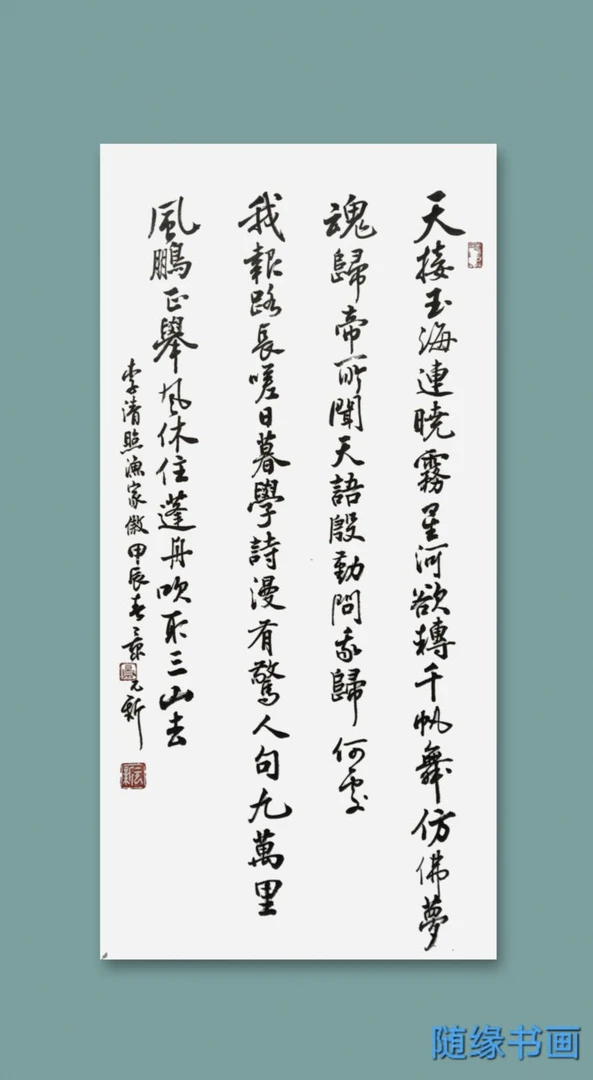 天接玉海連曉霧星河欲轉千帆舞仿佛夢
魂歸帝所聞天語殷勤問我歸何處
我報路長嗟日暮學詩漫有驚人句九萬里
風鵬正舉風休住蓬舟吹取三山去
李清照漁家傲甲辰春
随缘书画